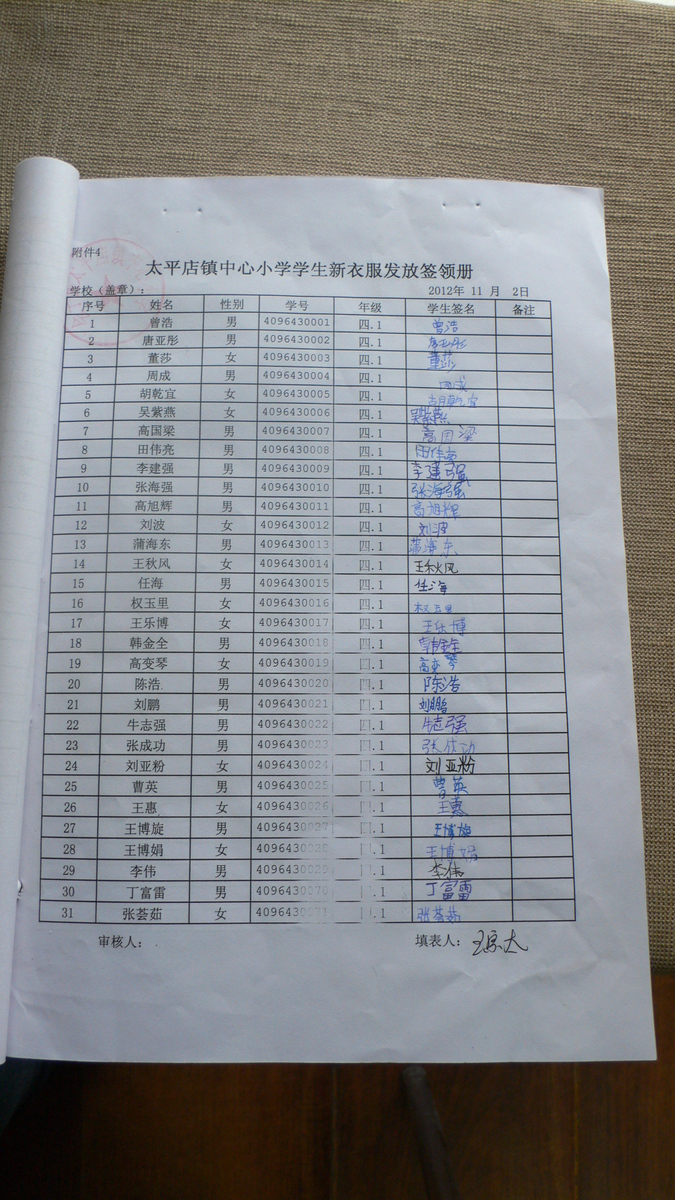 附件4
太平店镇中心小学学生新衣服发放签领册
学校（盖章）： 2012年 11 月 2日
序号 姓名 性别 学号 年级 学生签名 备注
1 曾浩 男 4096430001 四.1 曾浩
2 唐亚彤 男 4096430002 四.1 唐亚彤
3 董莎 女 4096430003 四.1 董莎
4 周成 男 4096430004 四.1 周成
5 胡乾宜 女 4096430005 四.1 胡乾宜
6 吴紫燕 女 4096430006 四.1 吴紫燕
7 高国梁 男 4096430007 四.1 高国梁
8 田伟亮 男 4096430008 四.1 田伟亮
9 李建强 男 4096430009 四.1 李建强
10 张海强 男 4096430010 四.1 张海强
11 高旭辉 男 4096430011 四.1 高旭辉
12 刘波 女 4096430012 四.1 刘波
13 蒲海东 男 4096430013 四.1 蒲海东
14 王秋风 女 4096430014 四.1 王秋风
15 任海 男 4096430015 四.1 任海
16 权玉里 女 4096430016 四.1 权玉里
17 王乐博 女 4096430017 四.1 王乐博
18 韩金全 男 4096430018 四.1 韩金全
19 高变琴 女 4096430019 四.1 高变琴
20 陈浩 男 4096430020 四.1 陈浩
21 刘鹏 男 4096430021 四.1 刘鹏
22 牛志强 男 4096430022 四.1 牛志强
23 张成功 男 4096430023 四.1 张成功
24 刘亚粉 女 4096430024 四.1 刘亚粉
25 曹英 男 4096430025 四.1 曹英
26 王惠 女 4096430026 四.1 王惠
27 王博旋 男 4096430027 四.1 王博旋
28 王博娟 女 四.1 王博娟
29 李伟 男 四.1 李伟
30 丁富雷 男 四.1 丁富雷
31 张荟茹 女 四.1 张荟茹
审核人： 填表人：